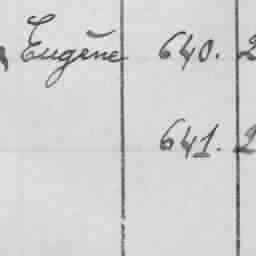 Eugène 640. 2
641. 2